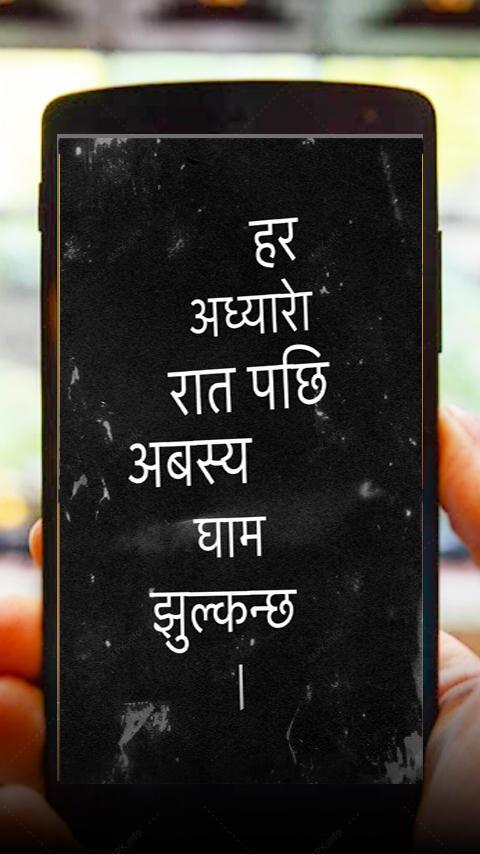 हर
अध्यारेा
रात पछि
अबस्य
घाम
झुल्कन्छ
|